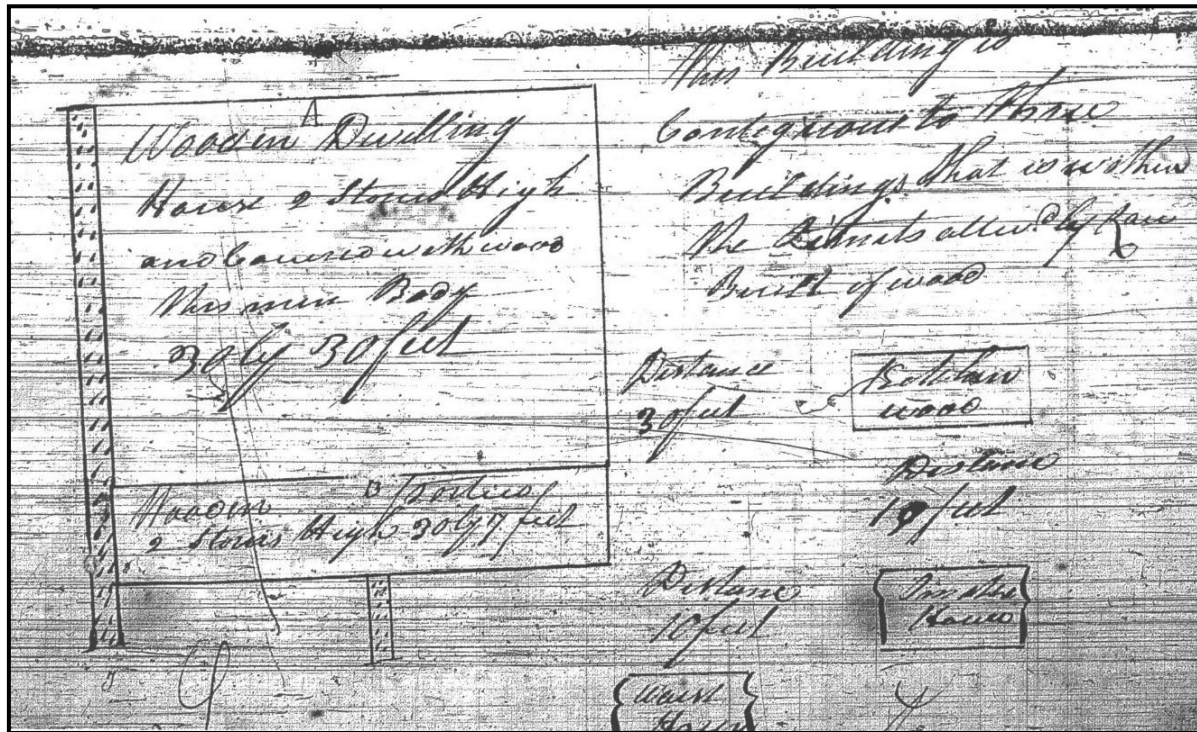 A
Wooden Dwelling
House 2 Stories High
and Covered with wood
this main Body
30 by 30 feet
Wooden B Portico
2 Stories High 30 by 7 feet
This Building is
Contiguous to three
Buildings that is within
the Limits allow'd by Law
Built of wood
Distance
30 feet
Kitchan
wood
Distance
19 feet
Distance
10 feet
Smoke
House
Wash
House